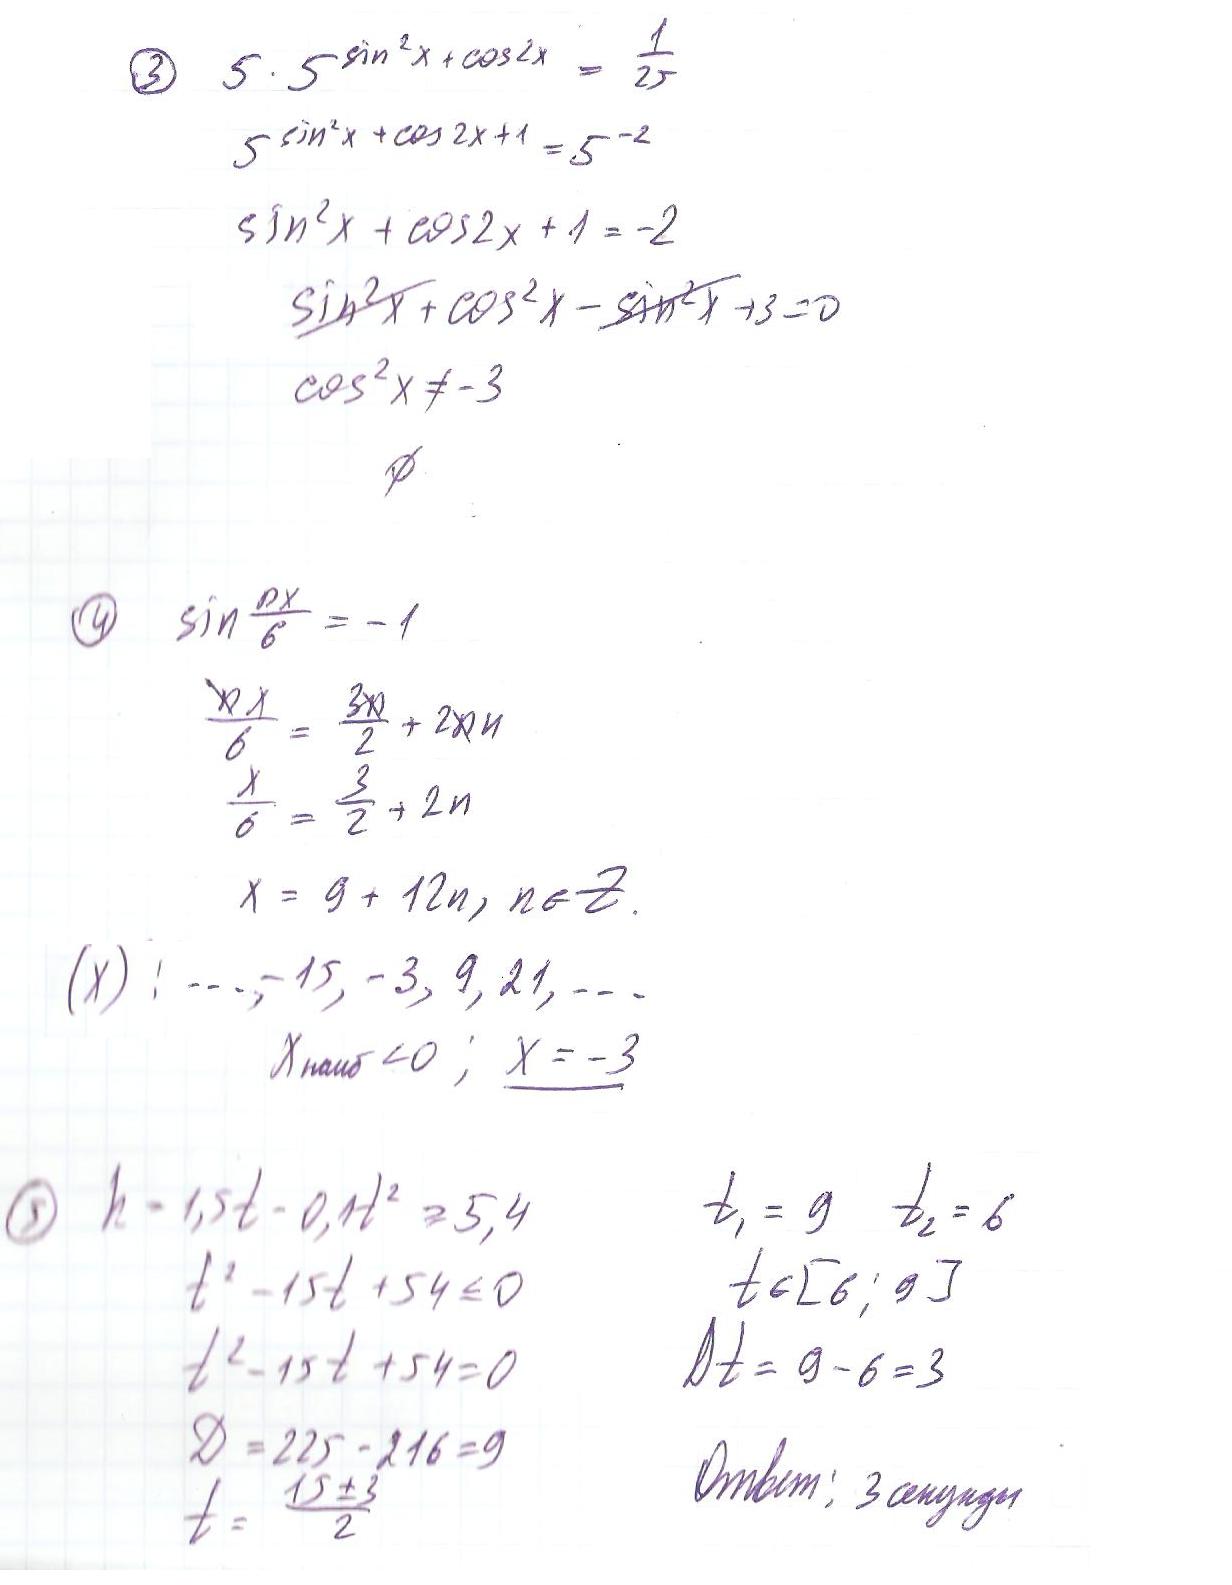 ③ 5 · 5^(sin²x + cos2x) = 1/25
5^(sin²x + cos2x + 1) = 5^(-2)
sin²x + cos2x + 1 = -2
sin²x + cos²x - sin²x + 3 = 0
cos²x ≠ -3
∅
④ sin πx/6 = -1
πx/6 = 3π/2 + 2πn
x/6 = 3/2 + 2n
x = 9 + 12n, n ∈ Z.
(x) : ..., -15, -3, 9, 21, ...
x наиб < 0 ; x = -3
⑤ h = 1,5t - 0,1t² ≥ 5,4
t² - 15t + 54 ≤ 0
t² - 15t + 54 = 0
D = 225 - 216 = 9
t = (15 ± 3)/2
t₁ = 9 t₂ = 6
t ∈ [6; 9]
Δt = 9 - 6 = 3
Ответ: 3 секунды